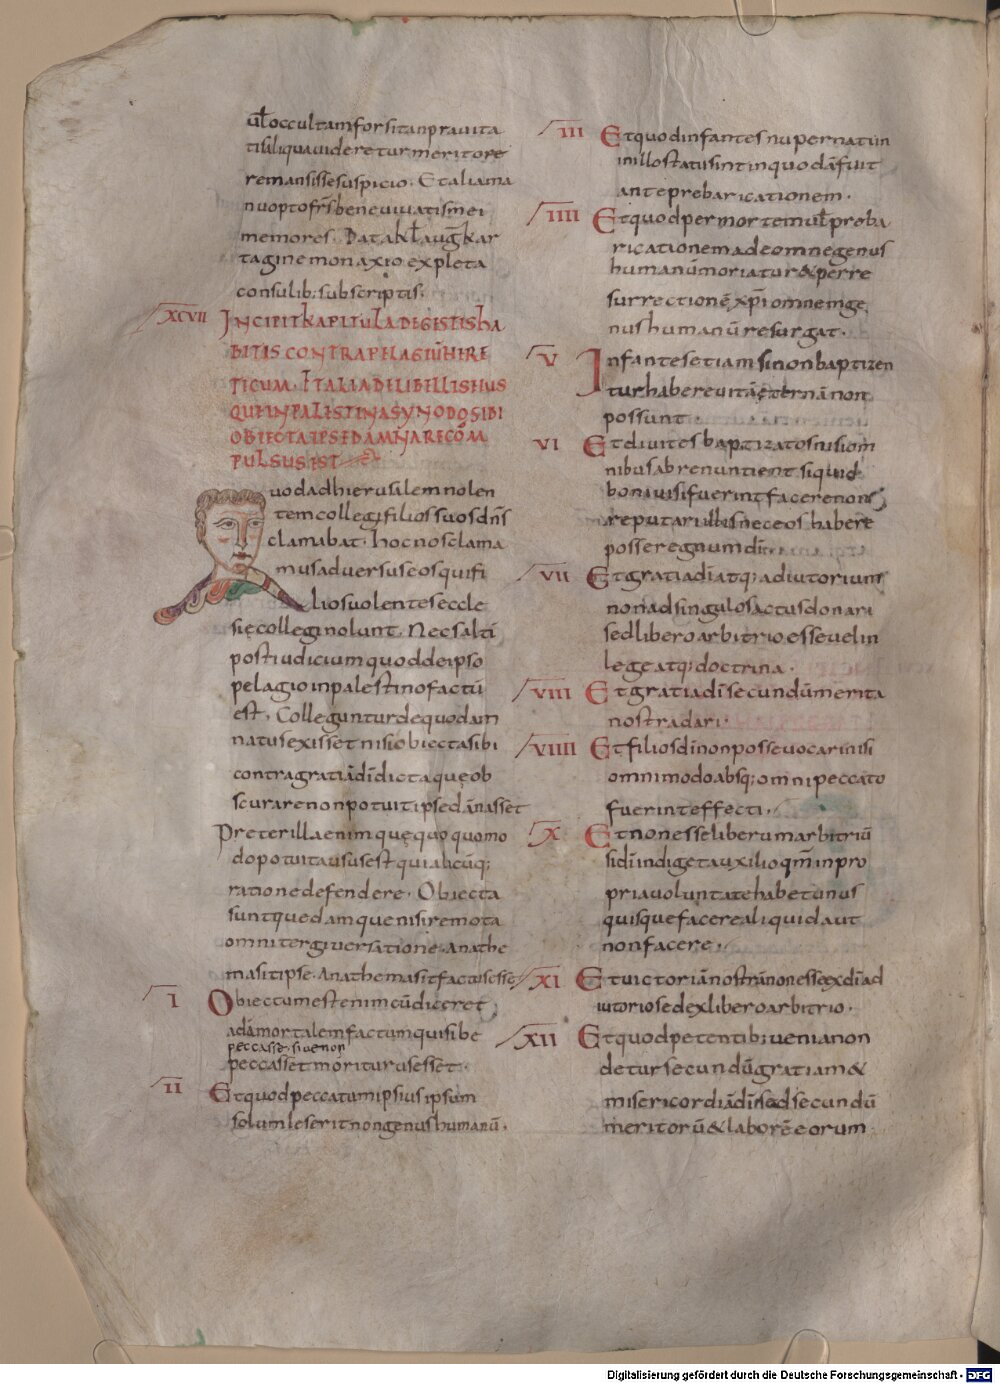 ul̅occultamforsitanprauita
tisaliquauideretur meritore
remansissesuspicio. Etaliama
nuoptofr̅sbeneuiuatismei
memores. Datakl̅aug̅kar
taginemonaxioexpleta
consulib;subscriptis.
XCVII INCIPITKAPITULADEGESTISHA
BITISCONTRAPELAGIU̅HERE
TICUM. ITALIADELIBELLISHUS
QUEINPALESTINASYNODOSIBI
OBIECTAIPSEDAMNARECO̅M
PULSUSEST
Quodadhierusalemnolen
temcollegifiliossuosdn̅s
clamabat. hocnosclama
musaduersuseosquifi
liosuolenteseccle
sięcolleginolunt. Necsalti̅
postiudiciumquoddeipso
pelagioinpalestinofactu̅
est. Colleguntur dequodam
natusexissetnisiobiectasibi
contragratia̅di̅dictaquęob
scurarenonpotuitipseda̅nasset
Preterillaenimquęquoquomo
dopotuitaususestquialicu̅q;
rationedefendere. Obiecta
suntquedamquenisiremota
omnitergiuersatione. Anathe
masitipse. Anathemasitfactusesse
I Obiectumestenimcu̅diceret
ada̅mortalemfactumquisibe
peccasse. siuenon
peccassetmoriturusesset.
II Etquodpeccatumipsiusipsum
solumleseritnongenushumanu̅.
III Etquodinfantesnupernatiin
inillostatusintinquoda̅fuit
anteprebaricationem.
IIII Etquodpermortemul̅preba
ricationemadeomnegenus
humanu̅moriatur&perre
surrectione̅xp̅iomnemge
nushumanu̅resurgat.
V Infantesetiamsinonbaptizen
turhabereuita̅ęterna̅non
possunt
VI Etdiuitesbaptizatosnisiom
nibusabrenuntientsiquid
boniuisifuerintfacerenon
reputariillisneceoshabere
posseregnumdi̅.
VII Etgratiadi̅atq;adiutorium
nonadsingulosactusdonari
sedliberoarbitrioesseuelin
legeatq;doctrina.
VIII Etgratiadi̅secundu̅merita
nostradari.
VIIII Etfiliosdi̅nonposseuocarinisi
omnimodoabsq;omnipeccato
fuerinteffecti.
X Etnonesseliberumarbitriu̅
sidi̅indigetauxilioqm̅inpro
priauoluntatehabetunus
quisquefacerealiquidaut
nonfacere.
XI Etuictoria̅nostra̅nonesseexdi̅ad
iutoriosedexliberoarbitrio.
XII Etquodpetentib;uenianon
detursecundu̅gratiam&
misericordia̅di̅sedsecundu̅
meritoru̅&labore̅eorum
Digitalisierung gefördert durch die Deutsche Forschungsgemeinschaft - DFG